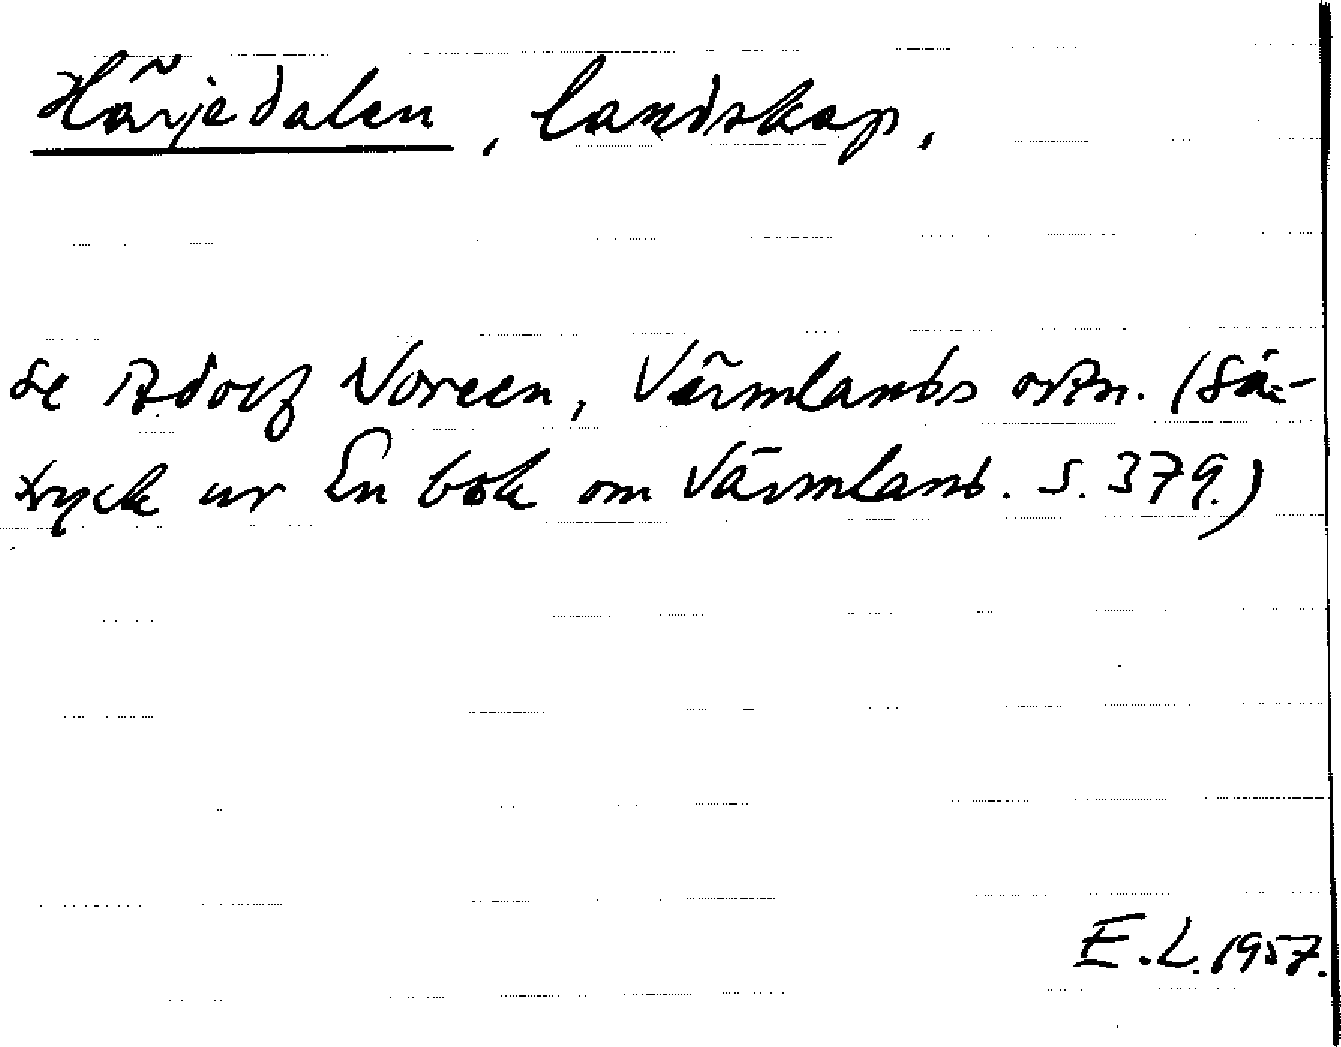 Härjedalen, landskap.
Se Adolf Noreen, Värmlands ortn. (Sär-
tryck ur En bok om Värmland. S. 379.)
E.L. 1957.